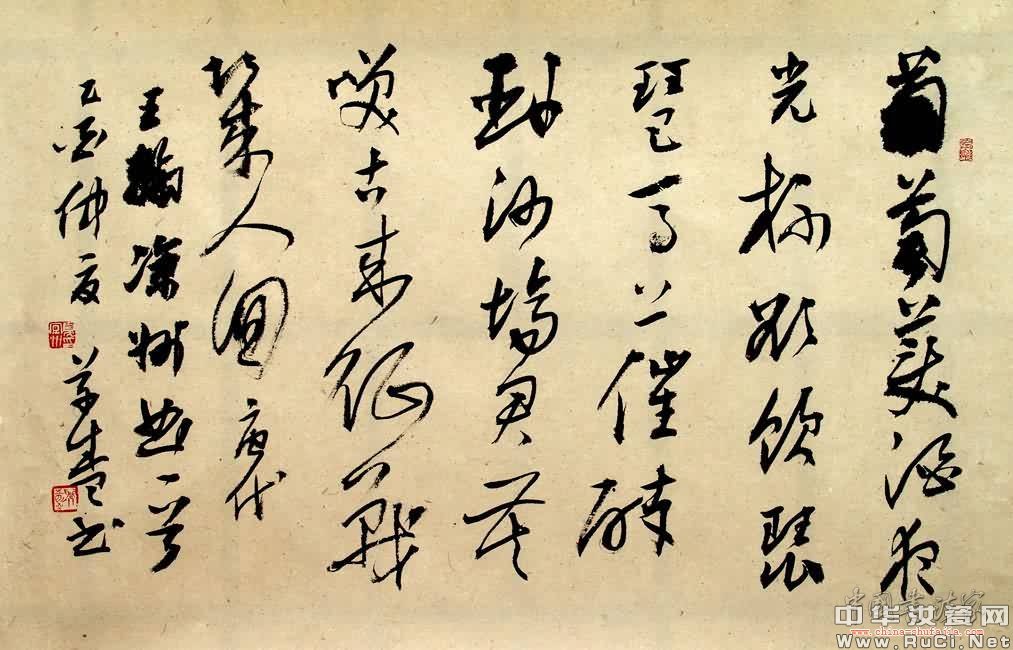 葡萄美酒夜
光杯欲飲琵
琶馬上催醉
卧沙場君莫
笑古來征戰
幾人回 唐代
王翰凉州曲一首
乙酉仲夏 書
中华汝瓷网
Www.RuCi.Net